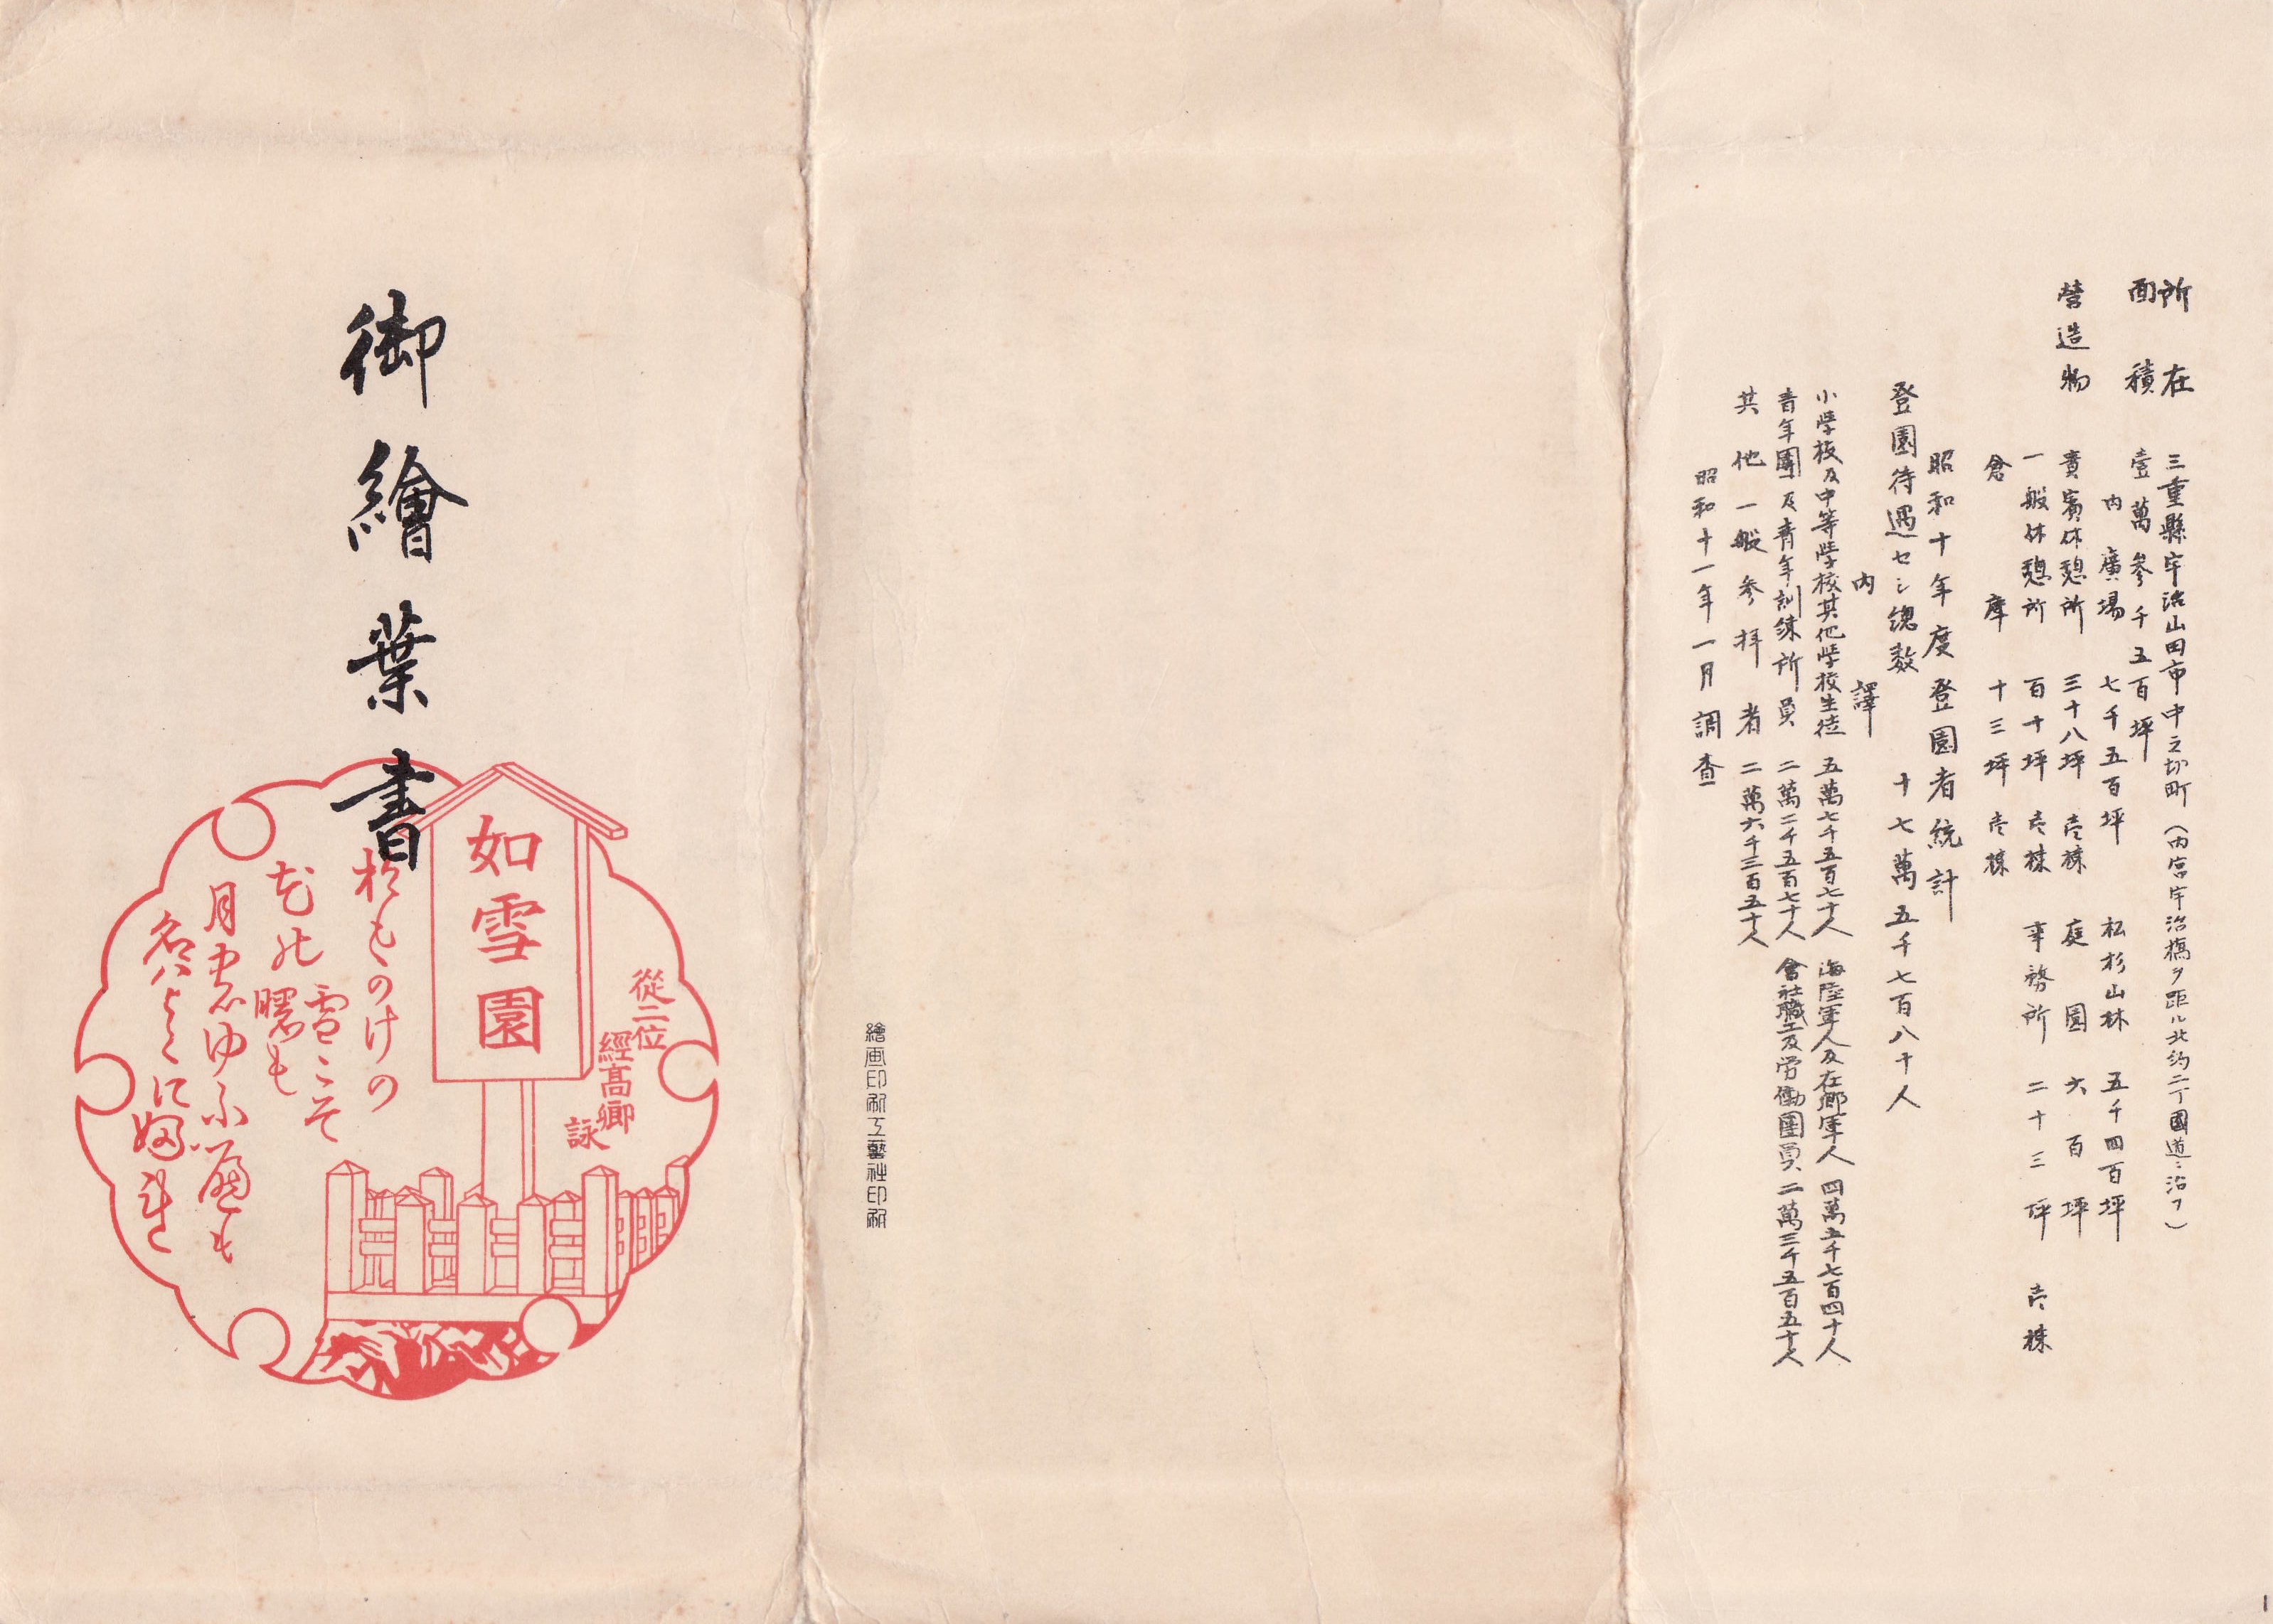 所在 三重縣宇治山田市中之切町(内宮宇治橋ヲ距ル北約二丁國道ニ沿フ)
面積 壹萬參千五百坪
内 廣場 七千五百坪 松杉山林 五千四百坪
營造物 貴賓休憩所 三十八坪 壱棟 庭園 六百坪
一般休憩所 百十坪 壱棟 事務所 二十三坪 壱棟
倉庫 十三坪 壱棟
昭和十年度登園者統計
登園待遇セシ總数 十七萬五千七百八十人
内譯
小学校及中等学校其他学校生徒 五萬七千五百七十人 海陸軍人及在郷軍人 四萬五千七百四十人
青年團及青年訓練所員 二萬二千五百七十人 會社職工及労働團員 二萬三千五百五十人
其他一般参拝者 二萬六千三百五十人
昭和十一年一月調査
繪画印刷工藝社印刷
御繪葉書
如雪園
從二位
經高卿
詠
松もものけの
雪こそ
花の
曙も
月
名